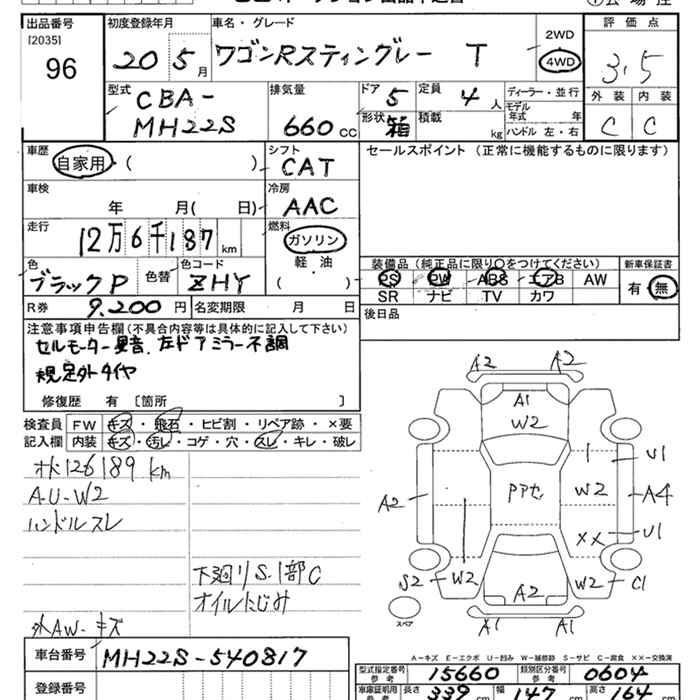 出品番号
[2035]
96
初度登録年月
20 5月
車名・グレード
ワゴンRスティングレー T
2WD
4WD
評価点
3.5
外装 内装
C C
型式
CBA-
MH22S
排気量
660 cc
ドア 5
形状 箱
定員 4 人
積載 kg
ディーラー・並行
モデル年式 年
ハンドル 左・右
車歴
自家用 ( )
シフト
CAT
セールスポイント (正常に機能するものに限ります)
車検
年 月( 日)
冷房
AAC
走行
12万6千187 km
燃料
ガソリン
軽・油
( )
色
ブラックP
色替
色コード
ZHY
装備品 (純正品に限り○をつけてください)
PS PW ABS エアB AW
SR ナビ TV カワ
新車保証書
有・無
R券 9,200 円
名変期限 月 日
後日品
注意事項申告欄(不具合内容等は具体的に記入して下さい)
セルモーター異音、左ドアミラー不調
規定外タイヤ
修復歴 有 〔箇所 〕
検査員記入欄
FW キズ・飛石・ヒビ割・リペア跡・×要
内装 キズ・汚レ・コゲ・穴・スレ・キレ・破レ
オド126189 km
A・U・W2
ハンドルスレ
下廻りS、1部C
オイルにじみ
外AW-キズ
A2 A2
A1
W2
U1
A2
PPセ
W2
A4
XX
U1
S2
W2
W2
C1
A2
スペア
A1 A1
A-キズ E-エクボ U-凹み W-補修跡 S-サビ C-腐食 XX-交換済
車台番号
MH22S-540817
登録番号
型式指定番号 参考
15660
類別区分番号 参考
0604
車庫証明用 参考
長さ 339 cm
幅 147 cm
高さ 164 cm